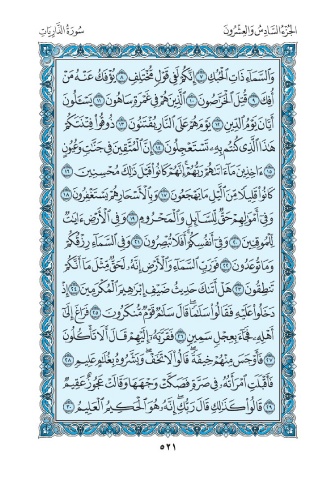 سُورَةُ الذَّارِيَاتِ الجُزْءُ السَّادِسُ وَالعِشْرُونَ
وَالسَّمَاءِ ذَاتِ الْحُبُكِ ٧ إِنَّكُمْ لَفِي قَوْلٍ مُّخْتَلِفٍ ٨ يُؤْفَكُ عَنْهُ مَنْ
أُفِكَ ٩ قُتِلَ الْخَرَّاصُونَ ١٠ الَّذِينَ هُمْ فِي غَمْرَةٍ سَاهُونَ ١١ يَسْأَلُونَ
أَيَّانَ يَوْمُ الدِّينِ ١٢ يَوْمَ هُمْ عَلَى النَّارِ يُفْتَنُونَ ١٣ ذُوقُوا فِتْنَتَكُمْ
هَٰذَا الَّذِي كُنتُم بِهِ تَسْتَعْجِلُونَ ١٤ إِنَّ الْمُتَّقِينَ فِي جَنَّاتٍ وَعُيُونٍ
١٥ آخِذِينَ مَا آتَاهُمْ رَبُّهُمْ إِنَّهُمْ كَانُوا قَبْلَ ذَٰلِكَ مُحْسِنِينَ ١٦
كَانُوا قَلِيلًا مِّنَ اللَّيْلِ مَا يَهْجَعُونَ ١٧ وَبِالْأَسْحَارِ هُمْ يَسْتَغْفِرُونَ ١٨
وَفِي أَمْوَالِهِمْ حَقٌّ لِّلسَّائِلِ وَالْمَحْرُومِ ١٩ وَفِي الْأَرْضِ آيَاتٌ
لِّلْمُوقِنِينَ ٢٠ وَفِي أَنفُسِكُمْ أَفَلَا تُبْصِرُونَ ٢١ وَفِي السَّمَاءِ رِزْقُكُمْ
وَمَا تُوعَدُونَ ٢٢ فَوَرَبِّ السَّمَاءِ وَالْأَرْضِ إِنَّهُ لَحَقٌّ مِّثْلَ مَا أَنَّكُمْ
تَنطِقُونَ ٢٣ هَلْ أَتَاكَ حَدِيثُ ضَيْفِ إِبْرَاهِيمَ الْمُكْرَمِينَ ٢٤ إِذْ
دَخَلُوا عَلَيْهِ فَقَالُوا سَلَامًا قَالَ سَلَامٌ قَوْمٌ مُّنكَرُونَ ٢٥ فَرَاغَ إِلَىٰ
أَهْلِهِ فَجَاءَ بِعِجْلٍ سَمِينٍ ٢٦ فَقَرَّبَهُ إِلَيْهِمْ قَالَ أَلَا تَأْكُلُونَ
٢٧ فَأَوْجَسَ مِنْهُمْ خِيفَةً قَالُوا لَا تَخَفْ وَبَشَّرُوهُ بِغُلَامٍ عَلِيمٍ ٢٨
فَأَقْبَلَتِ امْرَأَتُهُ فِي صَرَّةٍ فَصَكَّتْ وَجْهَهَا وَقَالَتْ عَجُوزٌ عَقِيمٌ
٢٩ قَالُوا كَذَٰلِكِ قَالَ رَبُّكِ إِنَّهُ هُوَ الْحَكِيمُ الْعَلِيمُ ٣٠
٥٢١